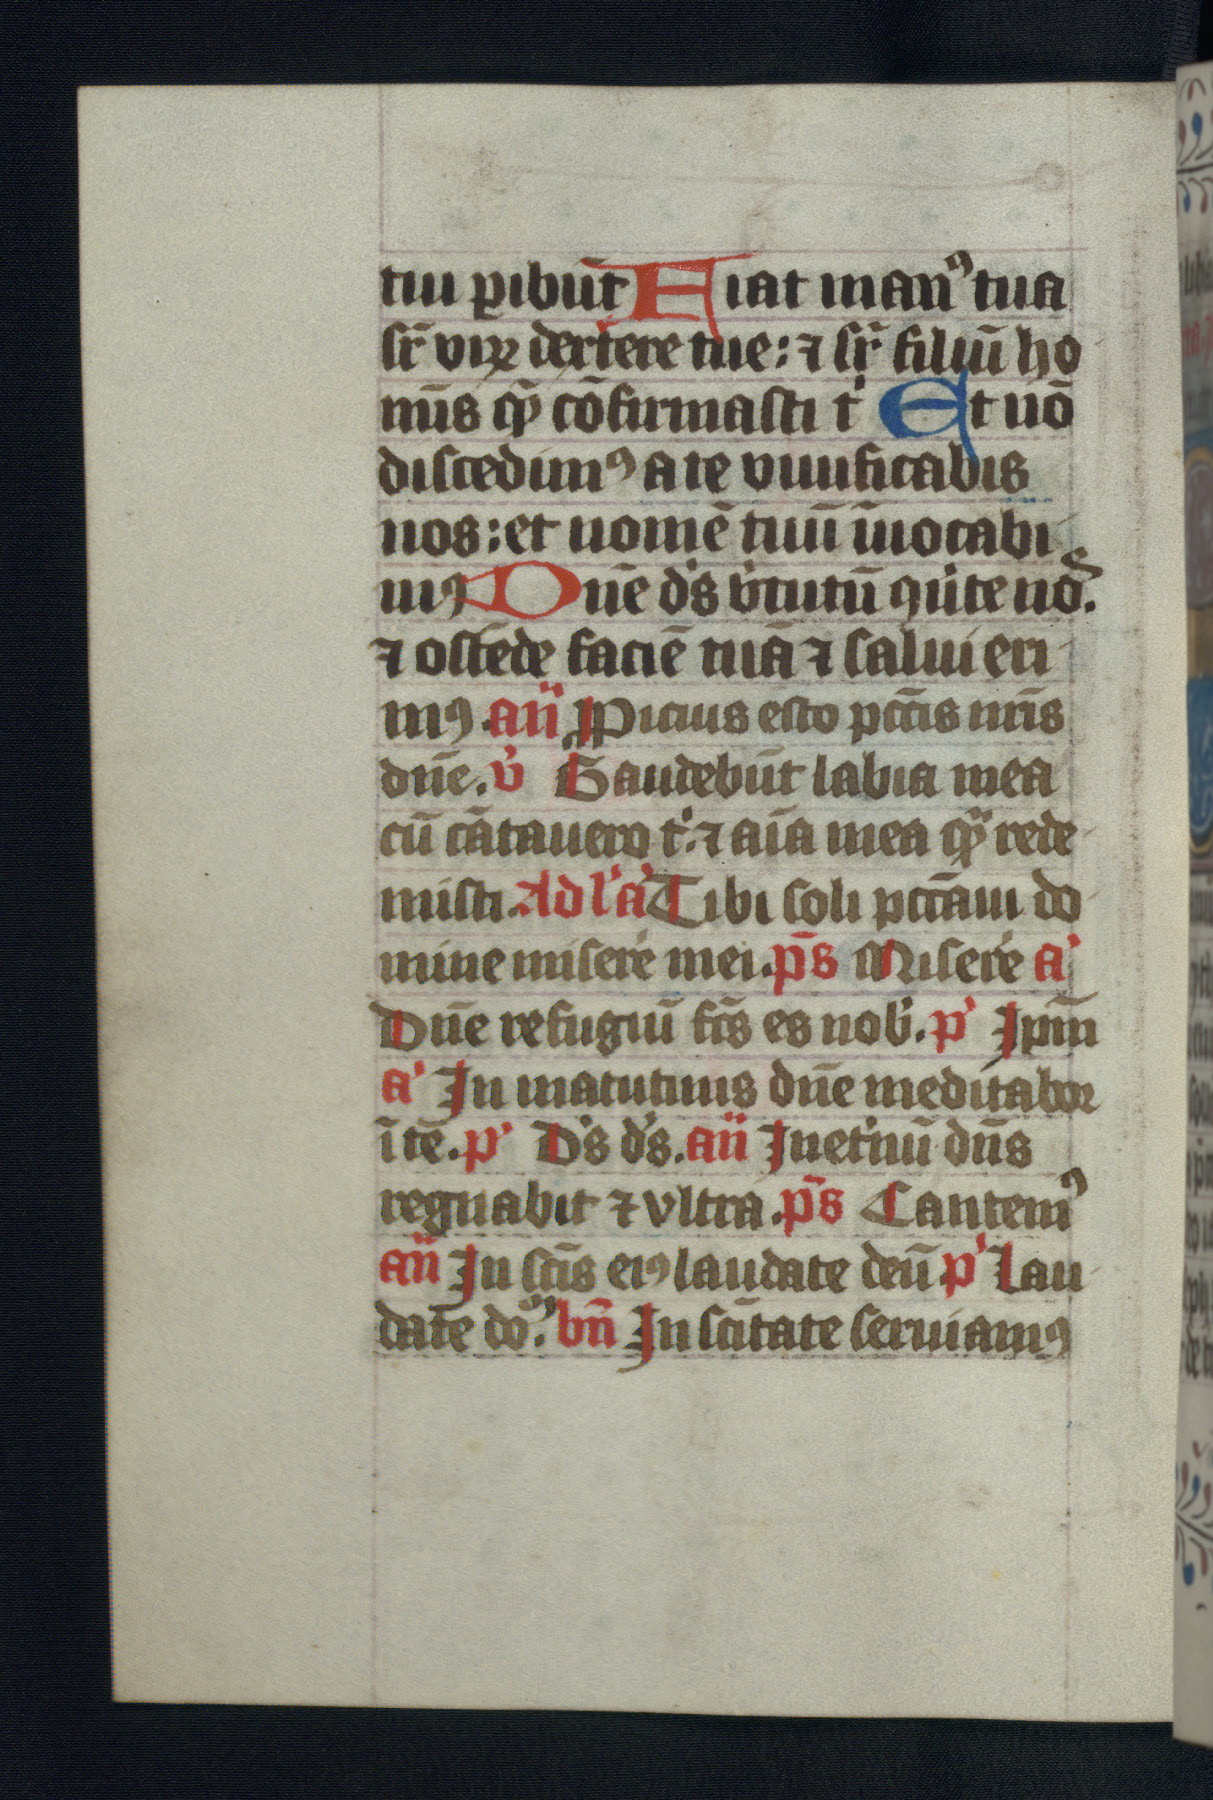 tui ꝑibūt Fiat manꝰ tua
sr̄ virꝝ dextere tue: ⁊ sr̄ filiū ho
mīs qͥ cōfirmasti tͥ Et nō
discedimꝰ a te viuificabis
nos: et nomē tuū īuocabi
mꝰ Dn̄e dͥs vͥtutū ꝯuͥte noˢ.
⁊ ostēde faciē tuā ⁊ salui eri
mꝰ an̄ Ꝓpicius esto pctīs nr̄is
dn̄e. v̓ Gaudebūt labia mea
cū cātauero tͥ: ⁊ aīa mea qͣ rede
misti. Ad lͣaͥ Tibi soli pctāui do
mine miserē mei. p̄s Miserē aͥ
Dn̄e refugiū fc̄s es nob̓. pͥ Ipm̄
aͥ In matutinis dn̄e meditabor
ī tē. pͥ Dͥs dͥs. an̄ In etͥnū dn̄s
regnabit ⁊ vltra. p̄s Cantemꝰ
an̄ In scīs eiꝰ laudate deū pͥ Lau
date doᵐ. bn̄ In scītate seruiamꝰ